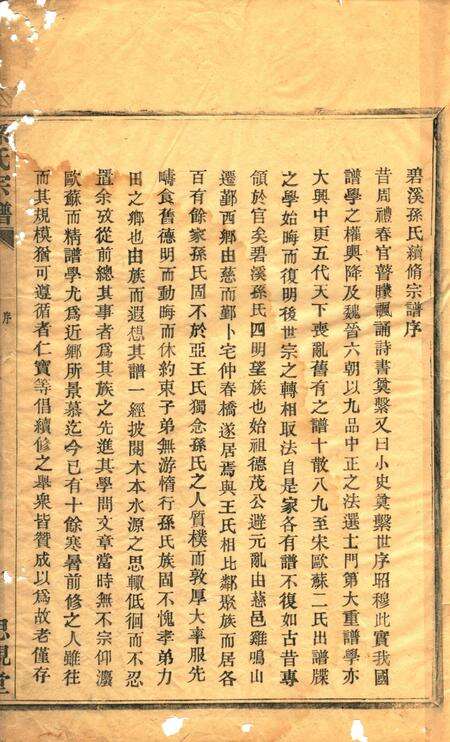 碧溪孫氏續脩宗譜序
昔周禮春官瞽矇諷誦詩書奠繫又曰小史奠繫世序昭穆此實我國
譜學之權輿降及魏晉六朝以九品中正之法選士門第大重譜學亦
大興中更五代天下喪亂舊有之譜十散八九至宋歐蘇二氏出譜牒
之學始晦而復明後世宗之轉相取法自是家各有譜不復如古昔專
領於官矣碧溪孫氏四明望族也始祖德茂公避元亂由慈邑雞鳴山
遷鄞西鄉由慈而鄞卜宅仲春橋遂居焉與王氏相比鄰聚族而居各
百有餘家孫氏固不於亞王氏獨念孫氏之人質樸而敦厚大率服先
疇食舊德明而動晦而休約束子弟無游惰行孫氏族固不愧孝弟力
田之鄉也由族而遐想其譜一經披閱木本水源之思輙低徊而不忍
置余攷從前總其事者為其族之先進其學問文章當時無不宗仰瀘
歐蘇而精譜學尤為近鄉所景慕迄今已有十餘寒暑前修之人雖往
而其規模猶可遵循者仁寶等倡續修之舉衆皆贊成以為故老僅存
氏宗譜
序
思親堂